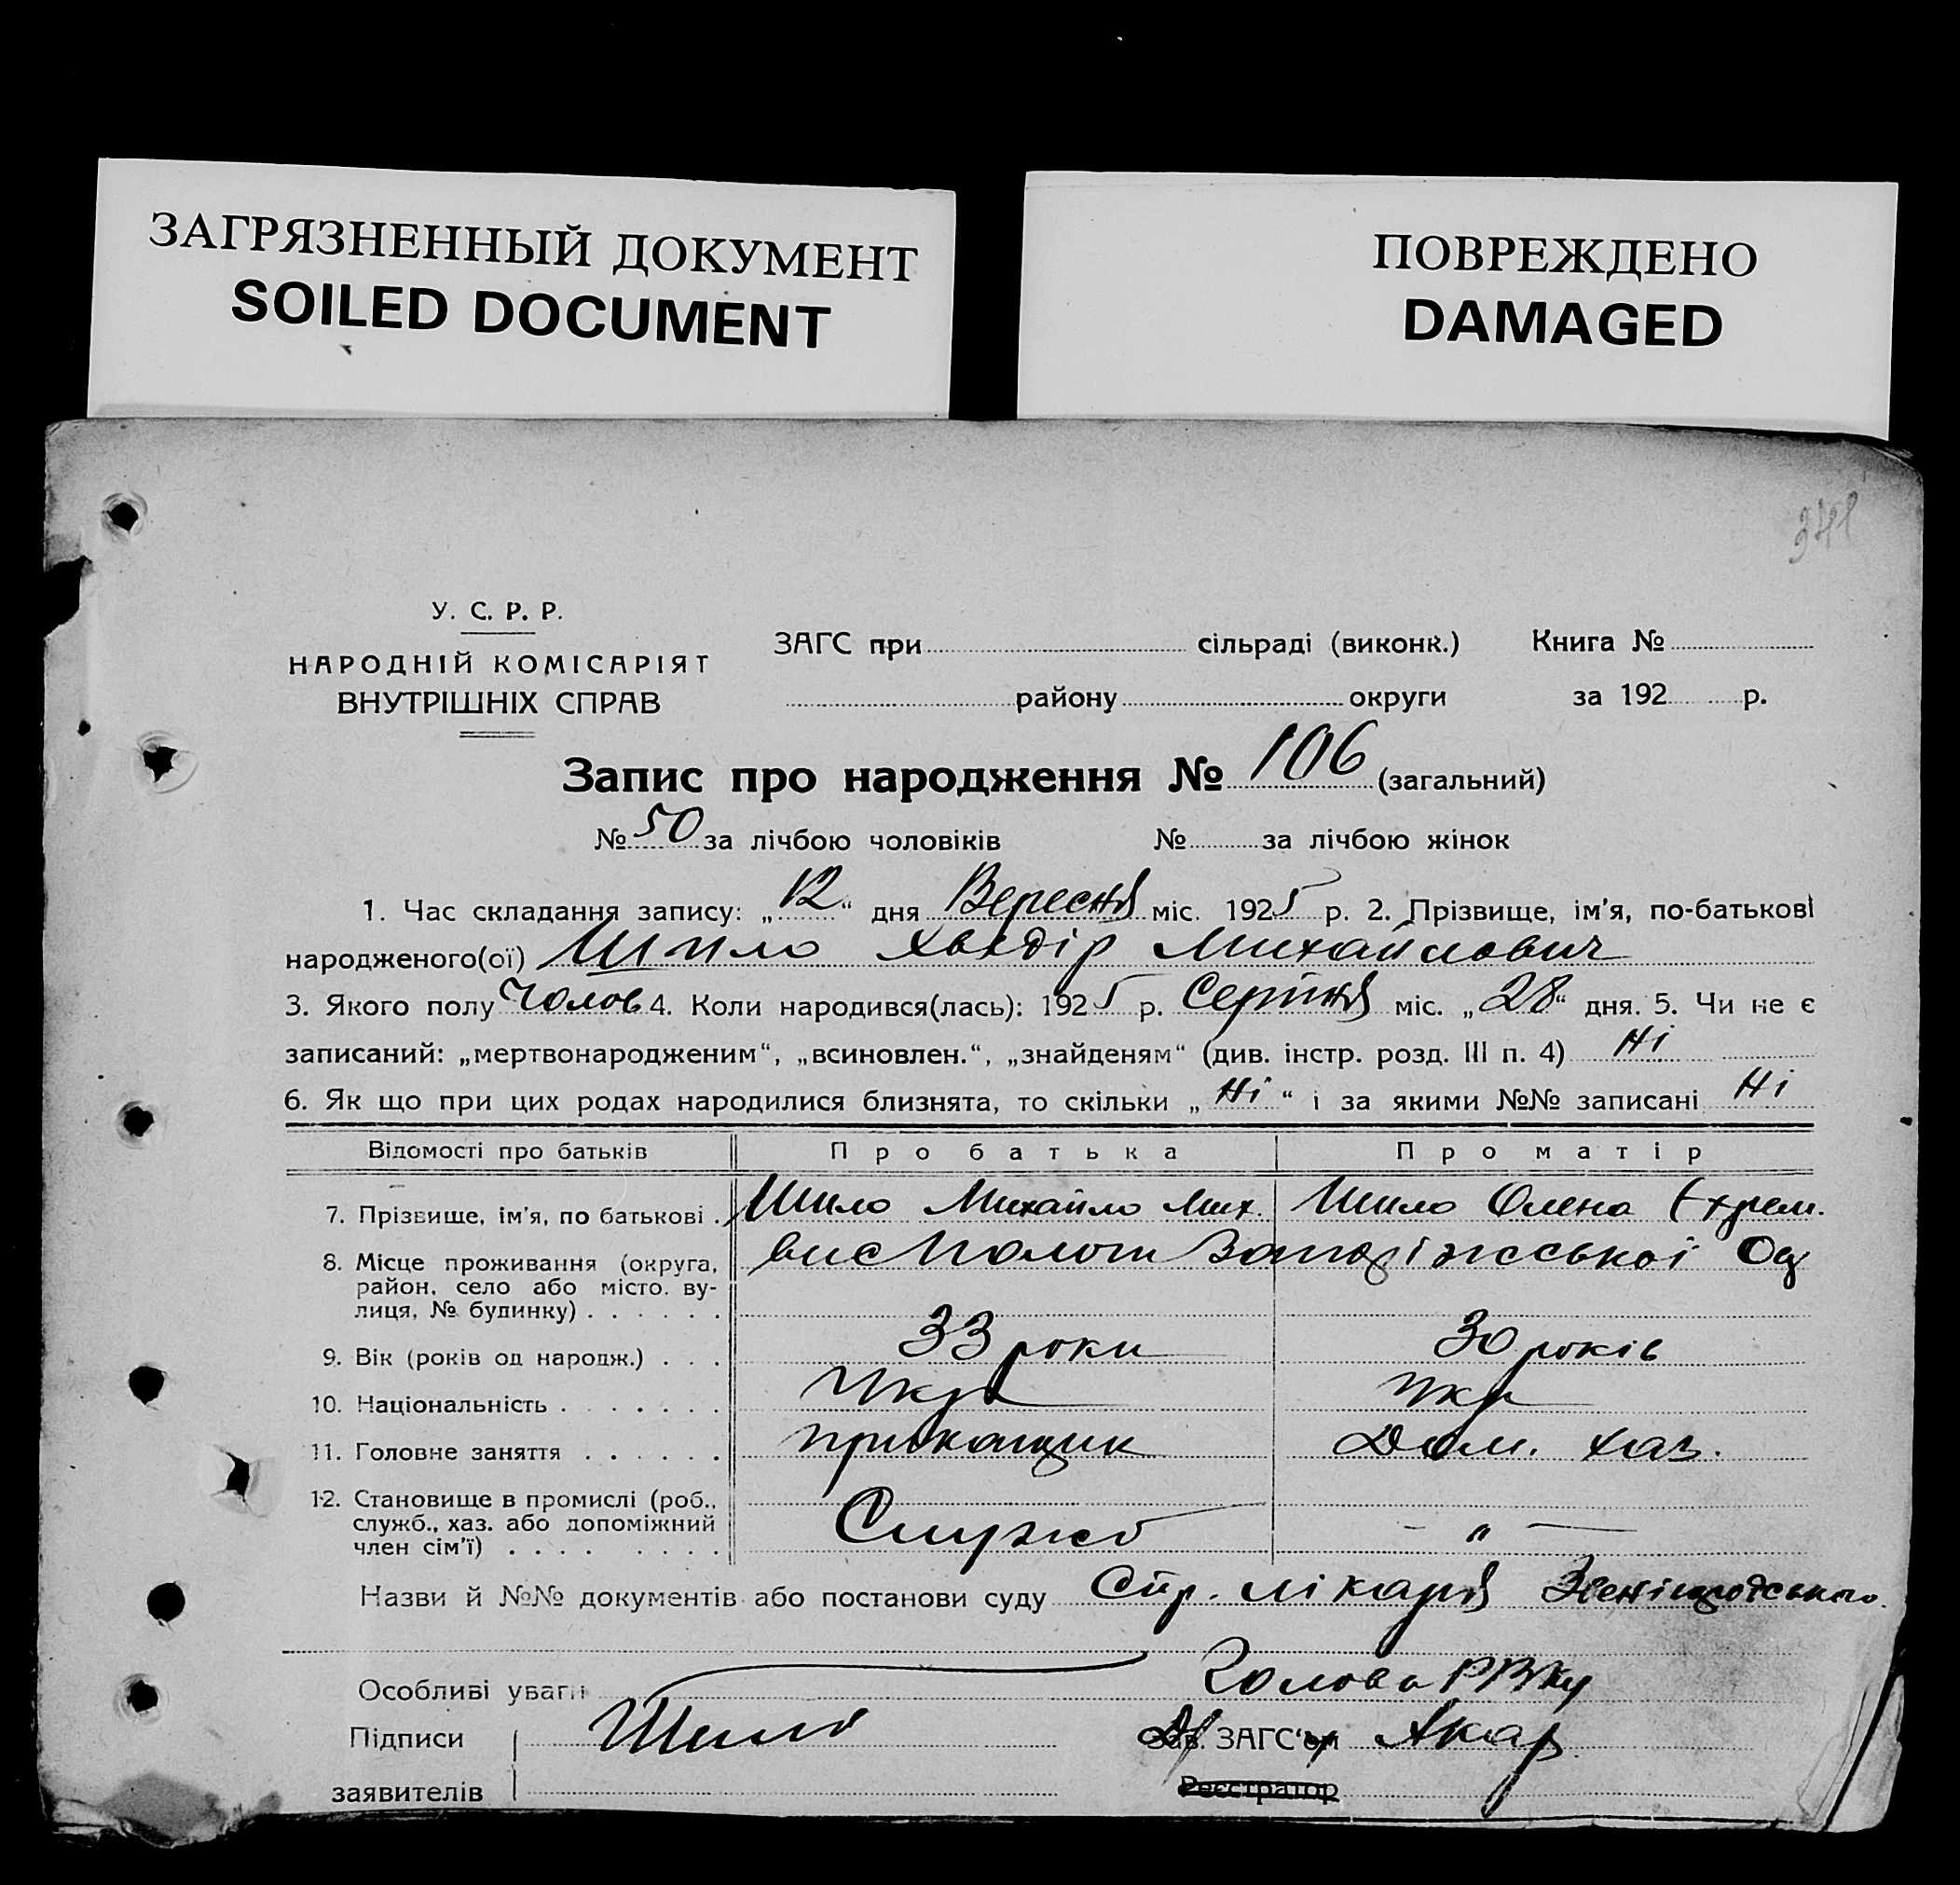 ЗАГРЯЗНЕННЫЙ ДОКУМЕНТ
SOILED DOCUMENT
ПОВРЕЖДЕНО
DAMAGED
341
У. С. Р. Р.
НАРОДНІЙ КОМІСАРІЯТ
ВНУТРІШНІХ СПРАВ
ЗАГС при сільраді (виконк.) Книга №
району округи за 192 р.
Запис про народження № 106 (загальний)
№ 50 за лічбою чоловіків № за лічбою жінок
1. Час складання запису: „12“ дня Вересня міс. 1925 р. 2. Прізвище, ім'я, по-батькові
народженого(ої) Шило Хведір Михайлович
3. Якого полу Чолов 4. Коли народився(лась): 1925 р. Серпня міс. „28“ дня. 5. Чи не є
записаний: „мертвонародженим“, „всиновлен.“, „знайденям“ (див. інстр. розд. III п. 4) Ні
6. Як що при цих родах народилися близнята, то скільки „Ні“ і за якими №№ записані Ні
Відомості про батьків Про батька Про матір
7. Прізвище, ім'я, по батькові . Шило Михайло Мих. Шило Олена Єхрем.
8. Місце проживання (округа, район, село або місто, вулиця, № будинку) . . . . . . вис Пологи Запоріжської Ок
9. Вік (років од народж.) . . . 33 роки 30 років
10. Національність . . . . . . . Укр Укр
11. Головне заняття . . . . . . прикащик Дом. хаз.
12. Становище в промислі (роб.,
служб., хаз. або допоміжний
член сім'ї) . . . . . . . . Служб — „ —
Назви й №№ документів або постанови суду Стр. лікаря Звенігородського
Особливі уваги Голова РВКу
Підписи Шило Зав. ЗАГС'ом
заявителів Реєстратор